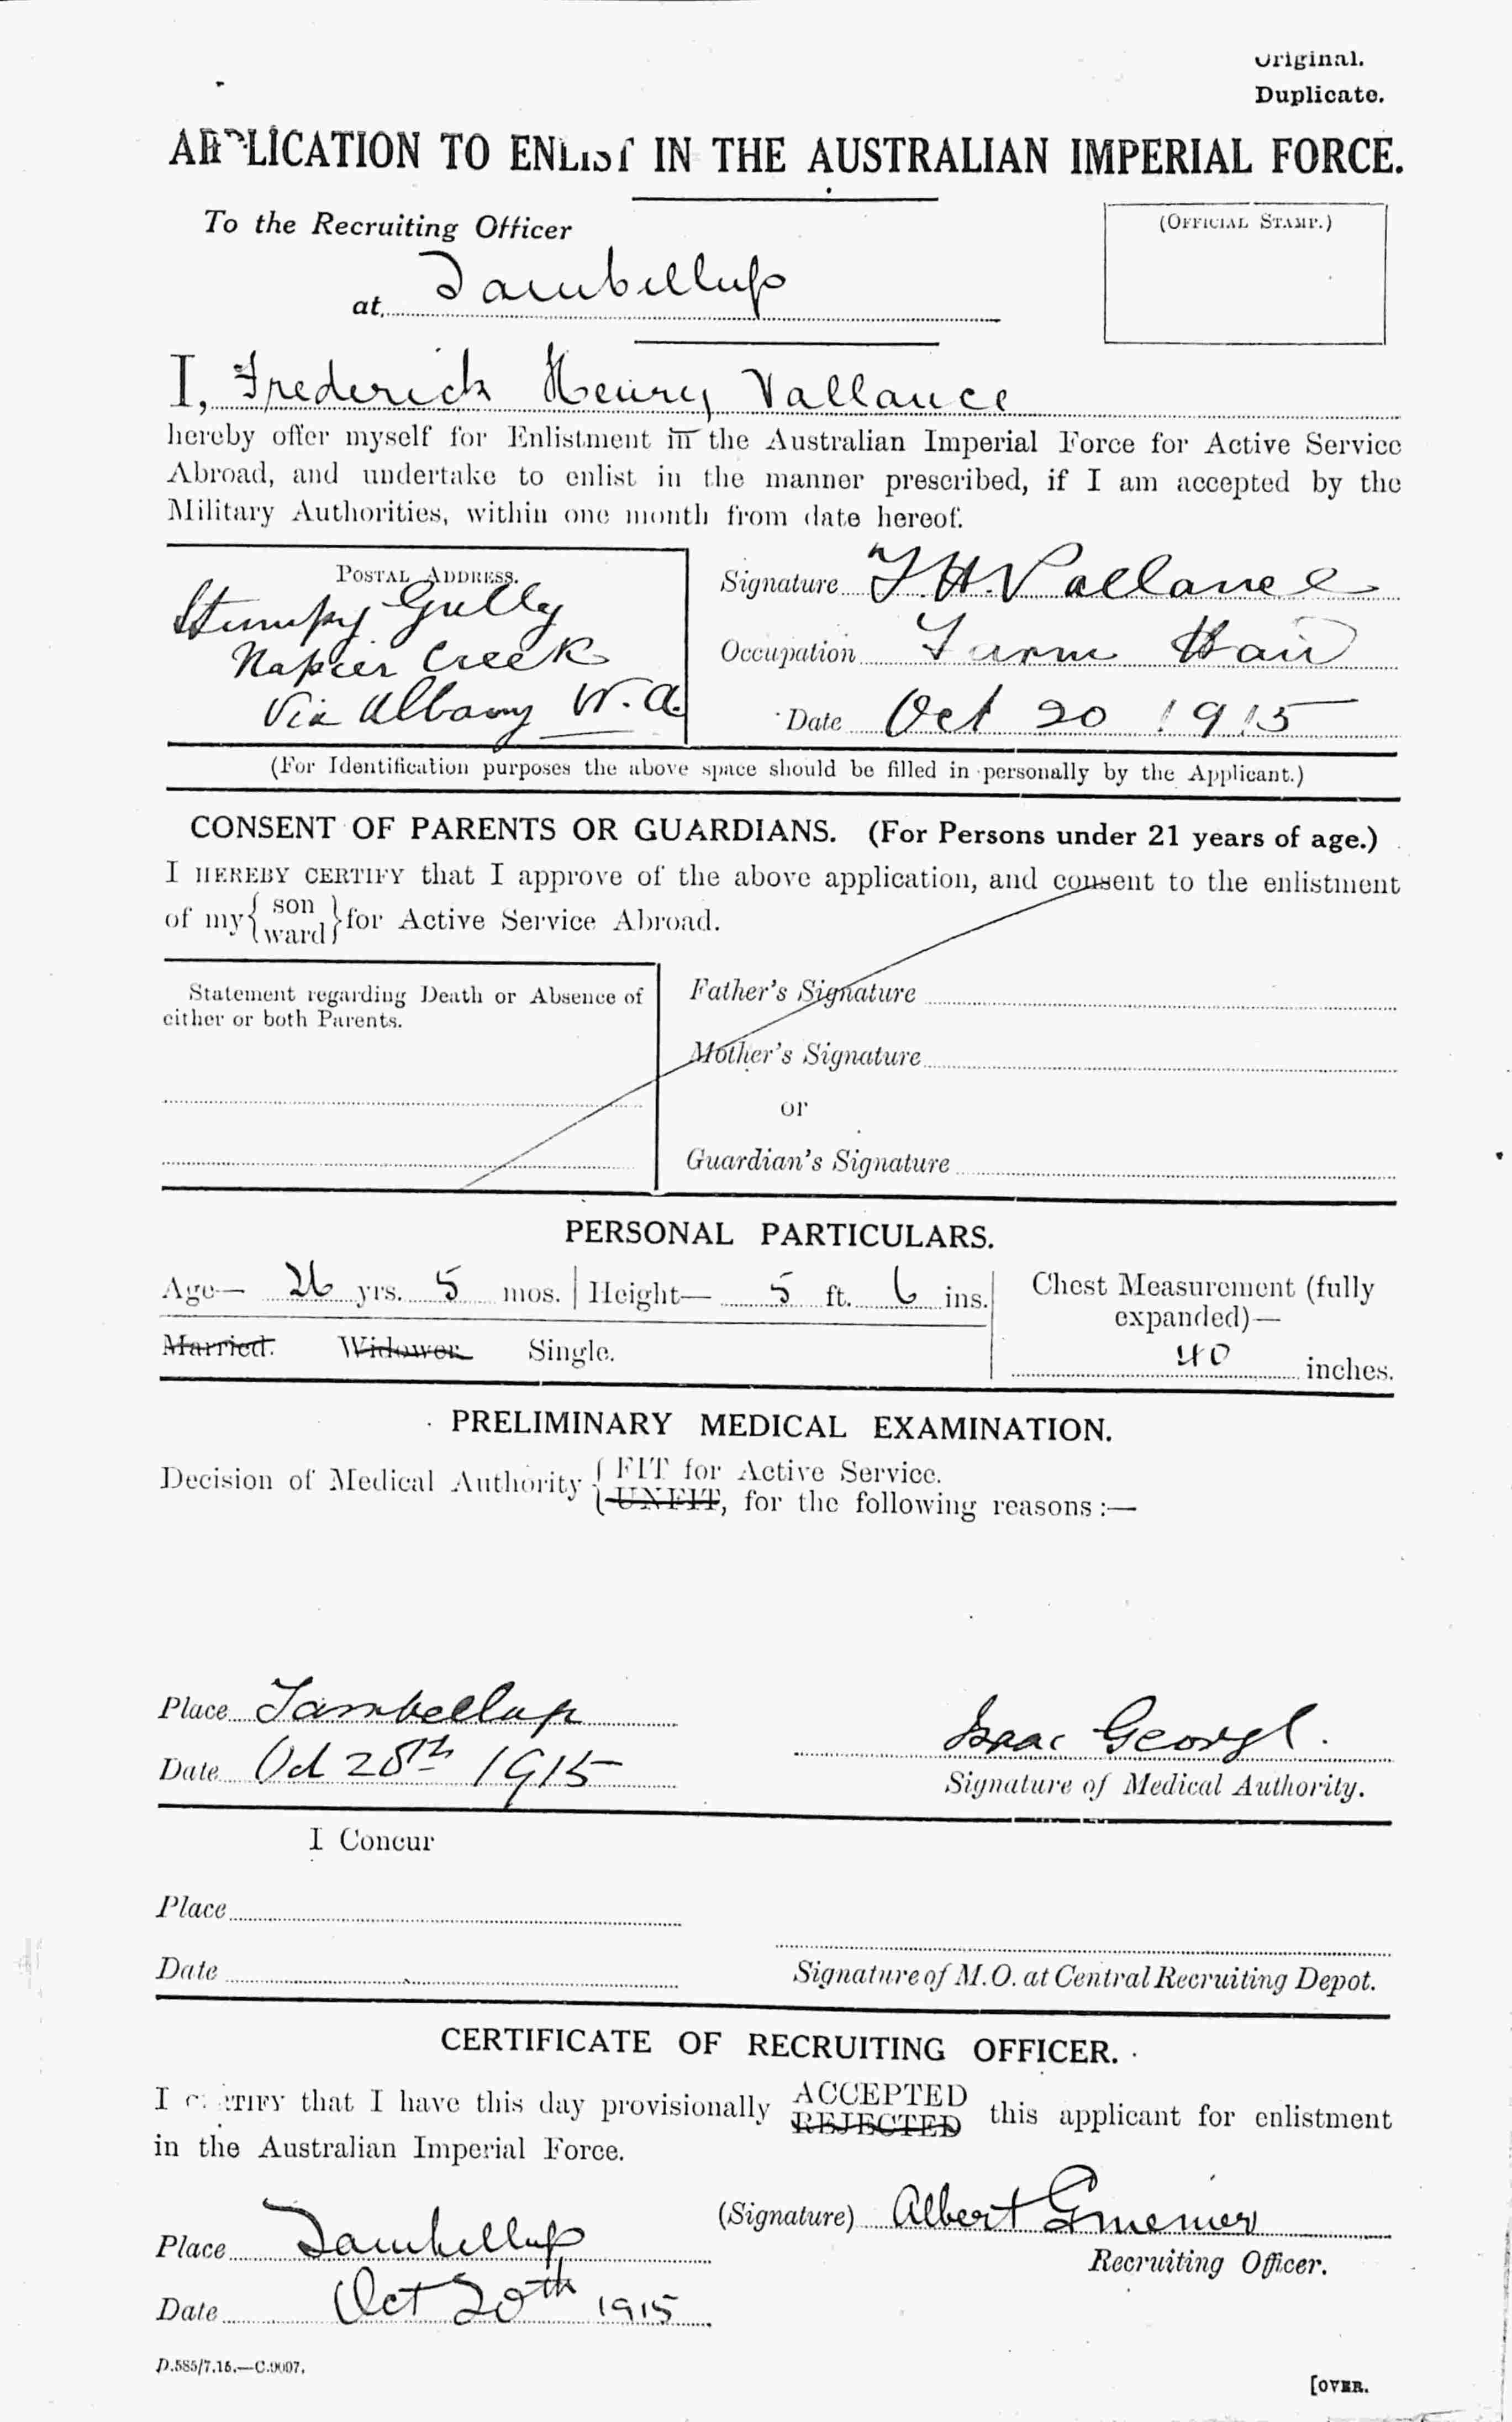 Original.
Duplicate.
APPLICATION TO ENLIST IN THE AUSTRALIAN IMPERIAL FORCE.
To the Recruiting Officer
(OFFICIAL STAMP.)
at Tambellup
I, Frederick Henry Vallance
hereby offer myself for Enlistment in the Australian Imperial Force for Active Service
Abroad, and undertake to enlist in the manner prescribed, if I am accepted by the
Military Authorities, within one month from date hereof.
POSTAL ADDRESS.
Stumpy Gully
Napier Creek
Via Albany W.A.
Signature F.H.Vallance
Occupation Farm Hand
Date Oct 20 1915
(For Identification purposes the above space should be filled in personally by the Applicant.)
CONSENT OF PARENTS OR GUARDIANS. (For Persons under 21 years of age.)
I HEREBY CERTIFY that I approve of the above application, and consent to the enlistment
of my { son ward } for Active Service Abroad.
Statement regarding Death or Absence of
either or both Parents.
Father's Signature
Mother's Signature
or
Guardian's Signature
PERSONAL PARTICULARS.
Age— 26 yrs. 5 mos. Height— 5 ft. 6 ins.
Married. Widower. Single.
Chest Measurement (fully
expanded)—
40 inches.
PRELIMINARY MEDICAL EXAMINATION.
Decision of Medical Authority { FIT for Active Service.
UNFIT, for the following reasons :—
Place Tambellup
Date Oct 20th 1915
Isaac George.
Signature of Medical Authority.
I Concur
Place
Date
Signature of M.O. at Central Recruiting Depot.
CERTIFICATE OF RECRUITING OFFICER.
I CERTIFY that I have this day provisionally ACCEPTED REJECTED this applicant for enlistment
in the Australian Imperial Force.
(Signature) Albert
Recruiting Officer.
Place Tambellup
Date Oct 20th 1915
D.585/7.15.—C.9007.
[OVER.